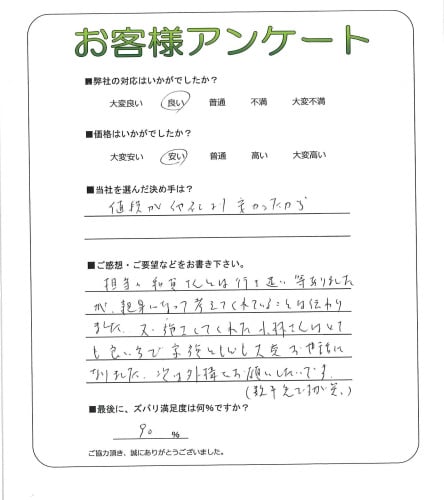 お客様アンケート
■弊社の対応はいかがでしたか?
大変良い 良い 普通 不満 大変不満
■価格はいかがでしたか?
大変安い 安い 普通 高い 大変高い
■当社を選んだ決め手は?
値段が他社より安かったから
■ご感想・ご要望などをお書き下さい。
担当の和賀さんとは行き違い等ありました
が、親身になって考えてくれていることは伝わり
ました。又、施工してくれた小林さんはとて
も良い方で家族ともども大変お世話に
なりました。次は外構でお願いしたいです。
(数年先ですが笑。)
■最後に、ズバリ満足度は何%ですか?
90 %
ご協力頂き、誠にありがとうございました。